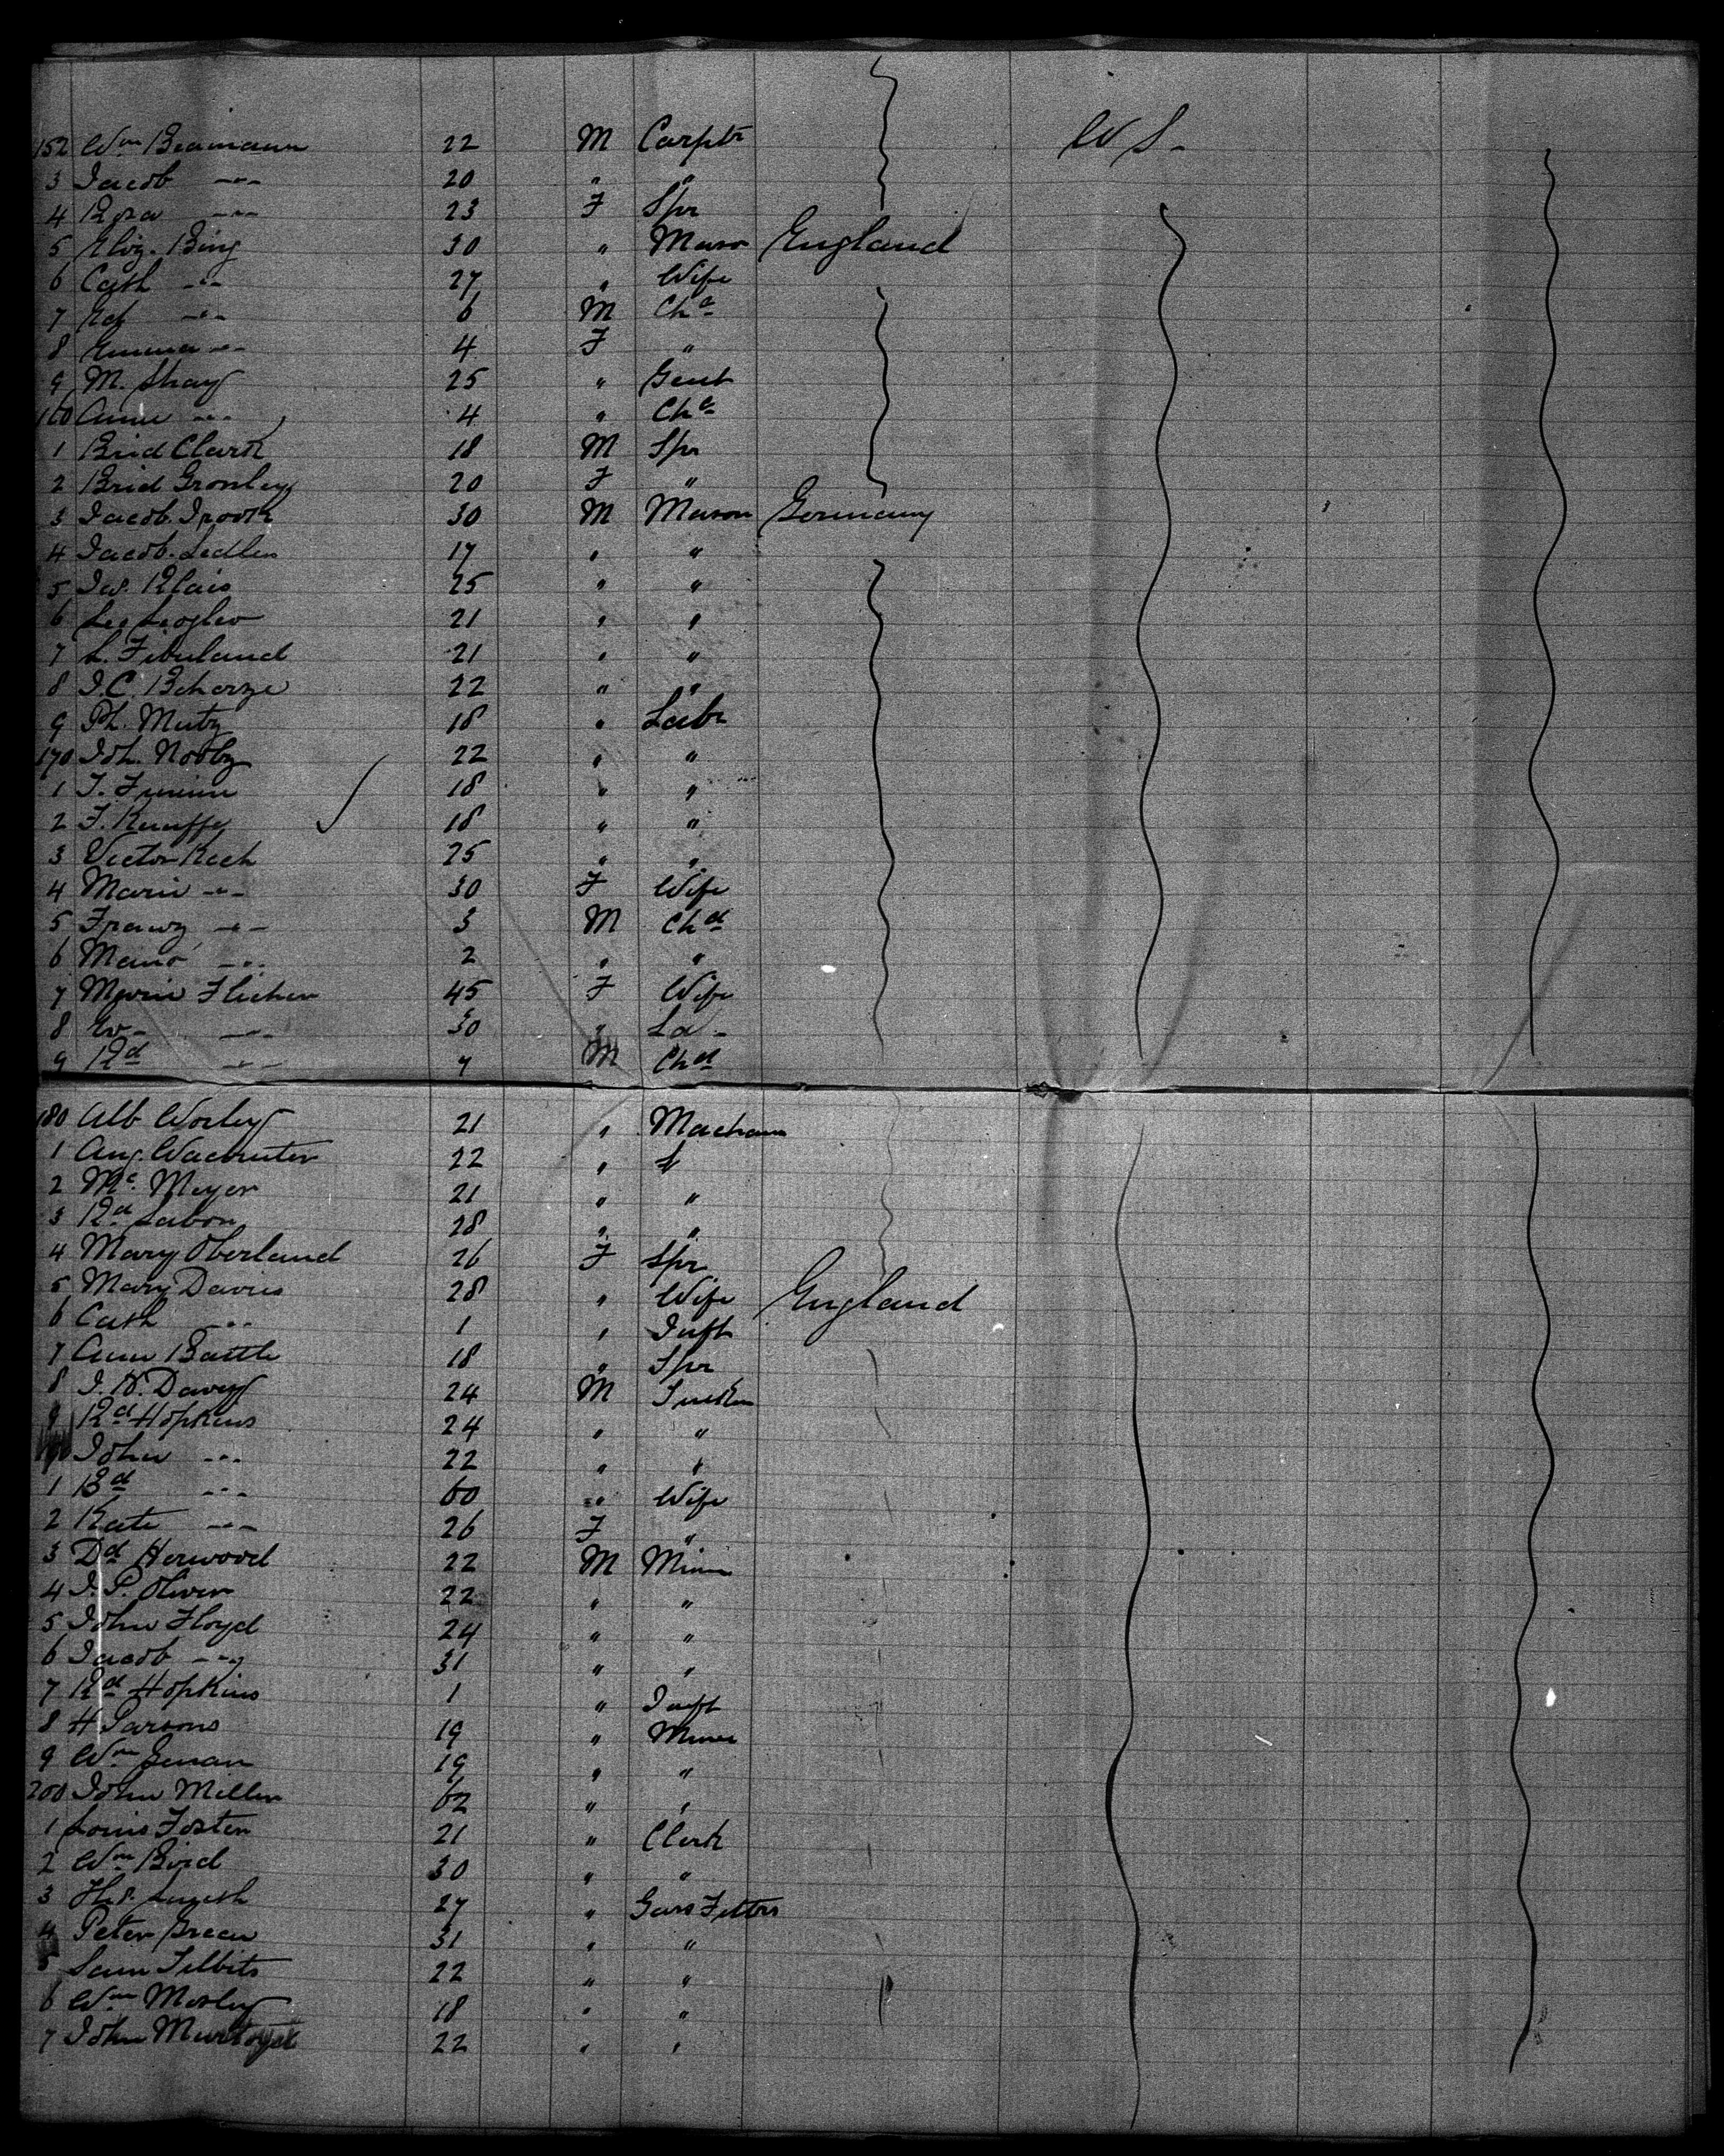 152 Wm Beamann 22 M Carptr U S-
3 Jacob -"- 20 " "
4 Rosa -"- 23 F Spr
5 Eliz. Bing 30 " Mason England
6 Cath -"- 27 " Wife
7 -"- 6 M Chd
8 Emma -"- 4 F "
9 M. Shay 25 " Gent
160 Anne -"- 4 " Chd
1 Brid Clark 18 M Spr
2 Brid Gronley 20 F "
3 Jacob 30 M Mason Germany
4 Jacob Sedler 17 " "
5 Jas. Klais 25 " "
6 Leo 21 " "
7 L. 21 " "
8 J.C. 22 " "
9 Ph. Mutz 18 " Labr
170 Joh. 22 " "
1 18 " "
2 18 " "
3 Victor Kech 25 " "
4 Marie -"- 30 F Wife
5 Franz -"- 3 M Chd
6 -"- 2 " "
7 Flicher 45 F Wife
8 -"- 30 " La-
9 Rd -"- 7 M Chd
180 Alb Worley 21 " Machann
1 Aug. 22 " "
2 Mc. Meyer 21 " "
3 Rd Labon 28 " "
4 Mary Oberland 26 F Spr
5 Mary Davies 28 " Wife England
6 Cath -"- 1 " Inft
7 Anne Battle 18 " Spr
8 J. H. Davey 24 M
9 Rd Hopkins 24 " "
190 John -"- 22 " "
1 Bd -"- 60 " Wife
2 Kate -"- 26 F "
3 Dd Herwood 22 M Miner
4 J. P. Oliver 22 " "
5 John Floyd 24 " "
6 Jacob -"- 31 " "
7 Rd Hopkins 1 " Inft
8 H Parsons 19 " Miner
9 Wm 19 " "
200 John Miller 62 " "
1 Louis Foster 21 " Clerk
2 Wm Bird 30 " "
3 27 " Gass Fitters
4 Peter Green 31 " "
5 Sam Tibbits 22 " "
6 Wm Morley 18 " "
7 John 22 " "